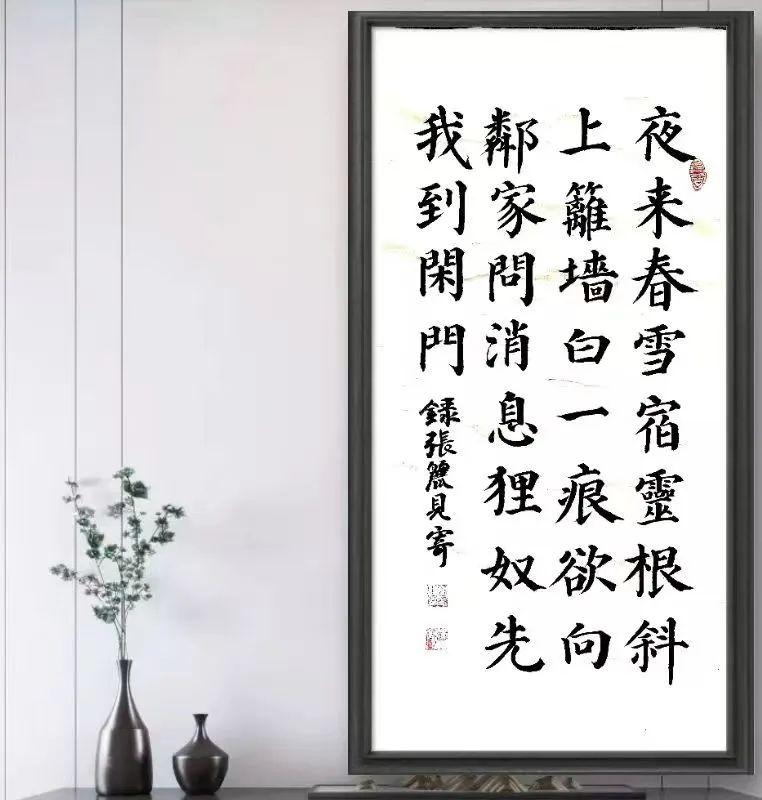 夜来春雪宿靈根斜
上籬墙白一痕欲向
鄰家問消息狸奴先
我到閑門
録張麗見寄